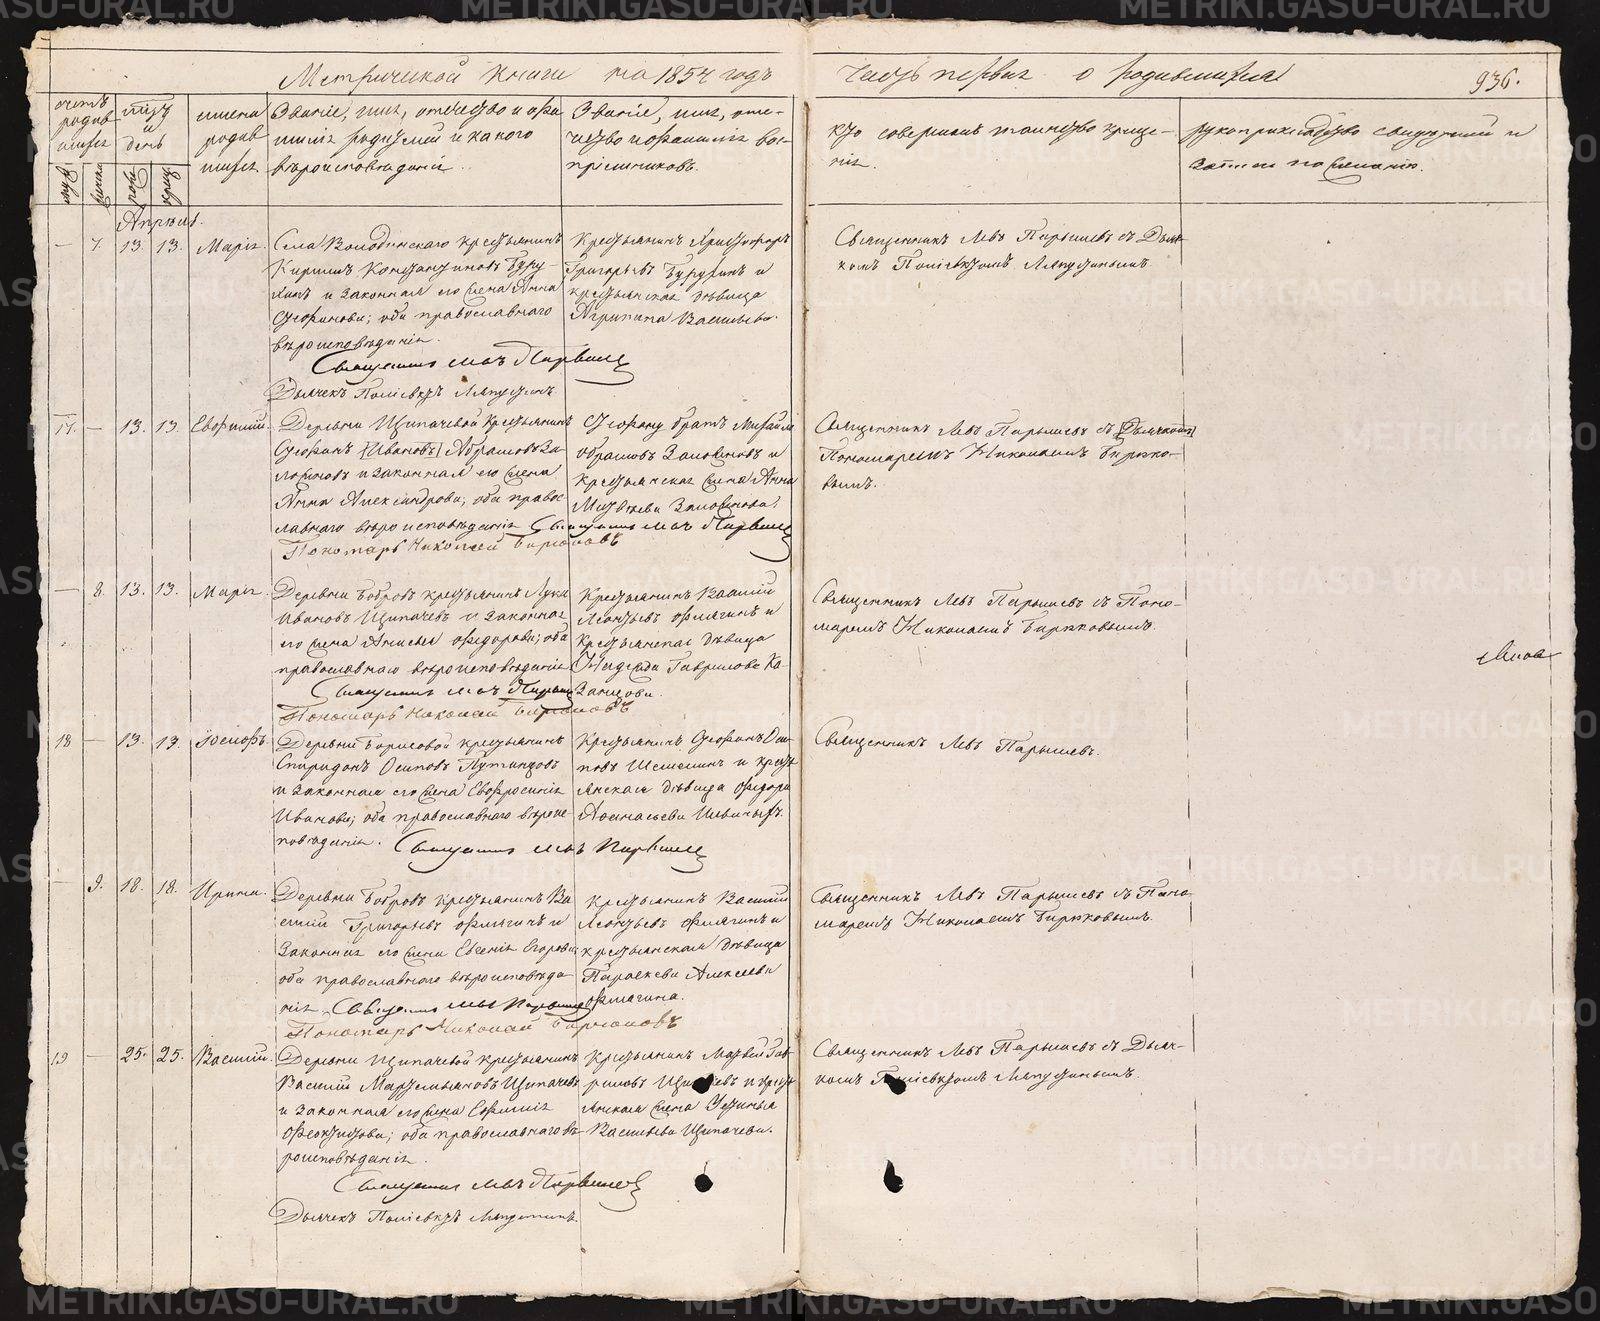 Метрической книги на 1854 годъ
часть первая о родившихся
936.
счетъ родив
шихся
мѣсяцъ и день
имена родив
шихся
Званіе, имя, отчество и фа-
милія родителей и какого
вѣроисповѣданія.
Званіе, имя, отче-
ство и фамилія вос-
пріемниковъ.
кто совершалъ таинство креще-
нія.
рукоприкладство свидѣтелей и
записи по желанію.
Апрѣль.
— 7. 13. 13. Марія.
Села Володинскаго крестьянинъ
Кириллъ Константиновъ
и законная его жена Анна
оба православнаго
вѣроисповѣданія.
Священникъ Левъ Парышевъ
Дьячекъ Поліевктъ Ляпустинъ
Крестьянинъ Христофоръ
Григорьевъ и
крестьянская дѣвица
Агрипина Васильева.
Священникъ Левъ Парышевъ съ Дьяч-
комъ Поліевктомъ Ляпустинымъ.
17. — 13. 13. Евфимій.
Деревни Щипачевой крестьянинъ
Стефанъ [Ивановъ] Абрамовъ
и законная его жена
Анна Александрова, оба право-
славнаго вѣроисповѣданія Священникъ Левъ Парышевъ
Пономарь Николай Бирюковъ
Стефану братъ Михаилъ
Абрамовъ и
крестьянская жена Анна
Матвѣева
Священникъ Левъ Парышевъ съ [Дьячкомъ]
Пономаремъ Николаемъ Бирюко-
вымъ.
— 8. 13. 13. Марія.
Деревни Бобровъ крестьянинъ Лука
Ивановъ Щипачевъ и законная
его жена Анисья Федорова; оба
православнаго вѣроисповѣданія
Священникъ Левъ Парышевъ
Пономарь Николай Бирюковъ
Крестьянинъ Василій
Леонтьевъ Флягинъ и
крестьянская дѣвица
Надежда Гаврилова Ка-
занцова.
Священникъ Левъ Парышевъ съ Поно-
маремъ Николаемъ Бирюковымъ.
18 — 13. 13. Іосифъ.
Деревни Борисовой крестьянинъ
Спиридонъ Осиповъ
и законная его жена Евфросинія
Иванова; оба православнаго вѣроис-
повѣданія. Священникъ Левъ Парышевъ
Крестьянинъ Стефанъ Оси-
повъ и кресть-
янская дѣвица Федора
Афанасьева Ильиныхъ.
Священникъ Левъ Парышевъ.
— 9. 18. 18. Ирина.
Деревни Бобровъ крестьянинъ Ва-
силій Григорьевъ Флягинъ и
законная его жена Евгенія Егорова
оба православнаго вѣроисповѣда-
нія. Священникъ Левъ Парышевъ
Пономарь Николай Бирюковъ
Крестьянинъ Василій
Леонтьевъ Флягинъ и
крестьянская дѣвица
Параскева Алексеева
Флягина.
Священникъ Левъ Парышевъ съ Поно-
маремъ Николаемъ Бирюковымъ.
19 — 25. 25. Василій.
Деревни Щипачевой крестьянинъ
Василій Мартемьяновъ Щипачевъ
и законная его жена Евфимія
Феоктистова; оба православнаго вѣ-
роисповѣданія.
Священникъ Левъ Парышевъ
Дьячекъ Поліевктъ Ляпустинъ.
Крестьянинъ Матвѣй Гав-
риловъ Щипачевъ и кресть-
янская жена Устинья
Васильева Щипачева.
Священникъ Левъ Парышевъ съ Дьяч-
комъ Поліевктомъ Ляпустинымъ.
METRIKI.GASO-URAL.RU